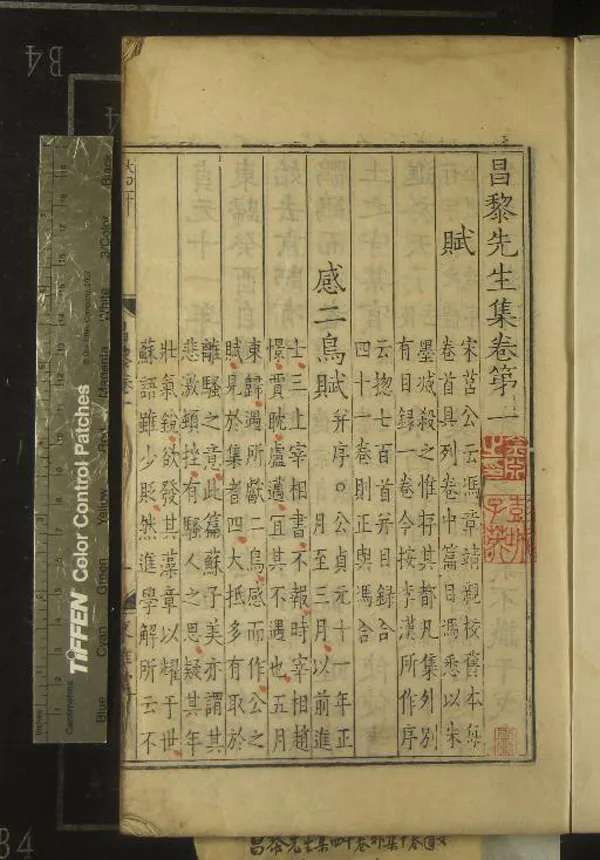 昌黎先生集卷第一
賦
宋莒公云馮章靖親校舊本每
卷首具列卷中篇目馮悉以朱
墨滅殺之惟存其都凡集外別
有目録一卷今按李漢所作序
云揔七百首并目録合
四十一卷則正與馮合
感二鳥賦
并序○公貞元十一年正
月至三月以前進
士三上宰相書不報時宰相趙
憬賈耽盧邁宜其不遇也五月
東歸遇所獻二鳥感而作公之
賦見於集者四大抵多有取於
離騷之意此篇蘇子美亦謂其
悲激頓挫有騷人之思疑其年
壯氣銳欲發其藻章以耀于世
蘇語雖少貶然進學解所云不
TIFFEN Color Control Patches
Blue Cyan Green Yellow Red Magenta White 3/Color Black
Inches
Centimetres
B4
B4
昌黎先生集四十卷外集十卷